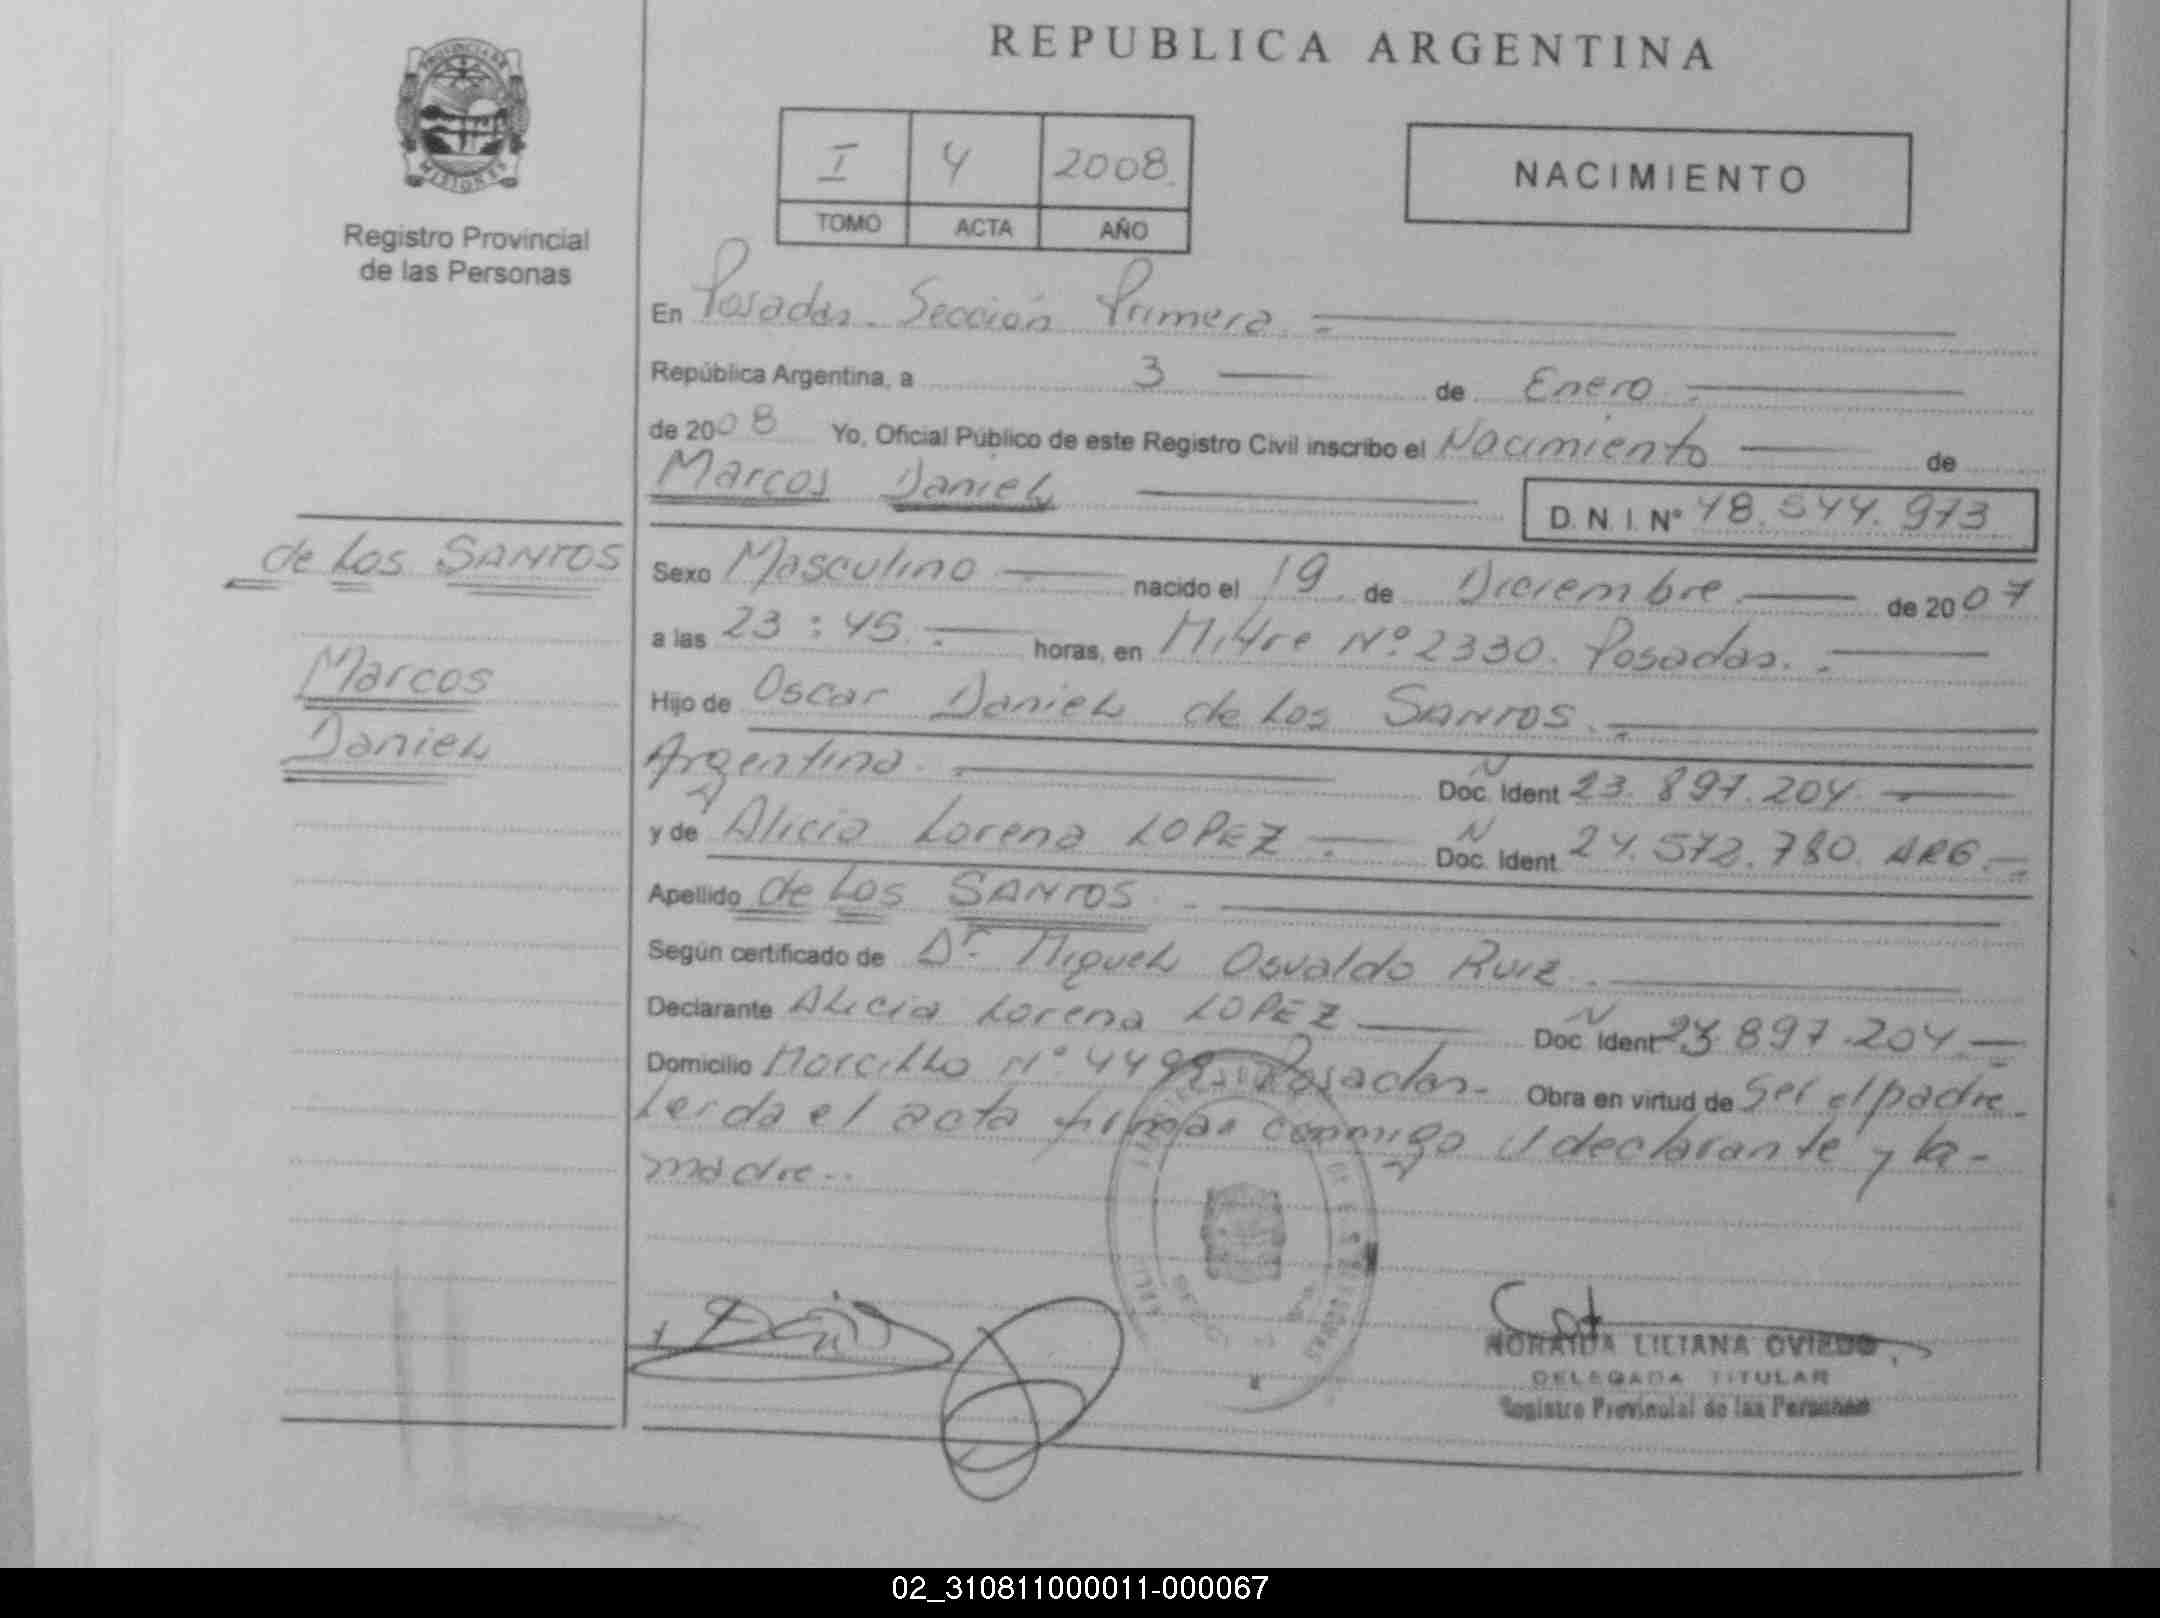 REPUBLICA ARGENTINA
PROVINCIA DE
MISIONES
Registro Provincial
de las Personas
I 4 2008.
TOMO ACTA AÑO
NACIMIENTO
En Posadas. Sección Primera.
República Argentina, a 3 de Enero.
de 2008 Yo, Oficial Público de este Registro Civil inscribo el Nacimiento de
Marcos Daniel
D. N. I. Nº 48.544.973
de los SANTOS
Marcos
Daniel
Sexo Masculino nacido el 19 de Diciembre de 2007
a las 23:45. horas, en Mitre Nº 2330. Posadas.
Hijo de Oscar Daniel de los SANTOS.
Argentino. N Doc. Ident 23.897.204
y de Alicia Lorena LOPEZ N Doc. Ident. 24.572.780. ARG.
Apellido de los SANTOS
Según certificado de Dr. Miguel Osvaldo Ruiz.
Declarante Alicia Lorena LOPEZ N Doc Ident 23.897.204.
Domicilio Nº Posadas. Obra en virtud de Ser el padre.
Leida el acta firman conmigo el declarante y la
madre..
NORAIDA LILIANA OVIEDO
DELEGADA TITULAR
Registro Provincial de las Personas
02_310811000011-000067